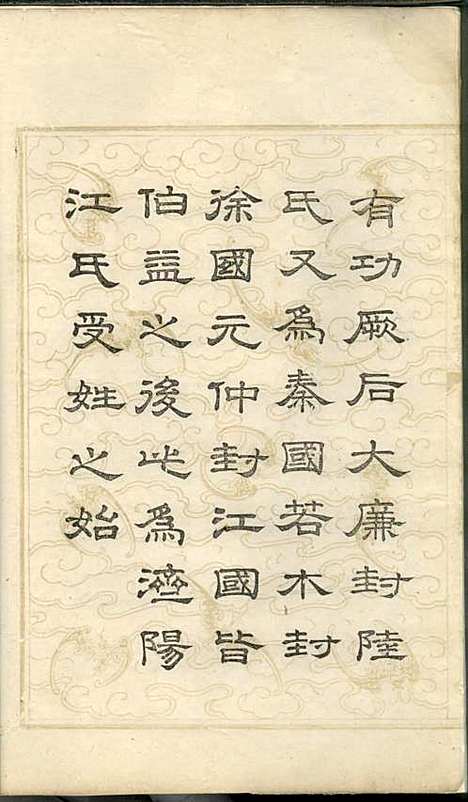 有功厥后大廉封陸
氏又爲秦國若木封
徐國元仲封江國皆
伯益之後此爲濟陽
江氏受姓之始